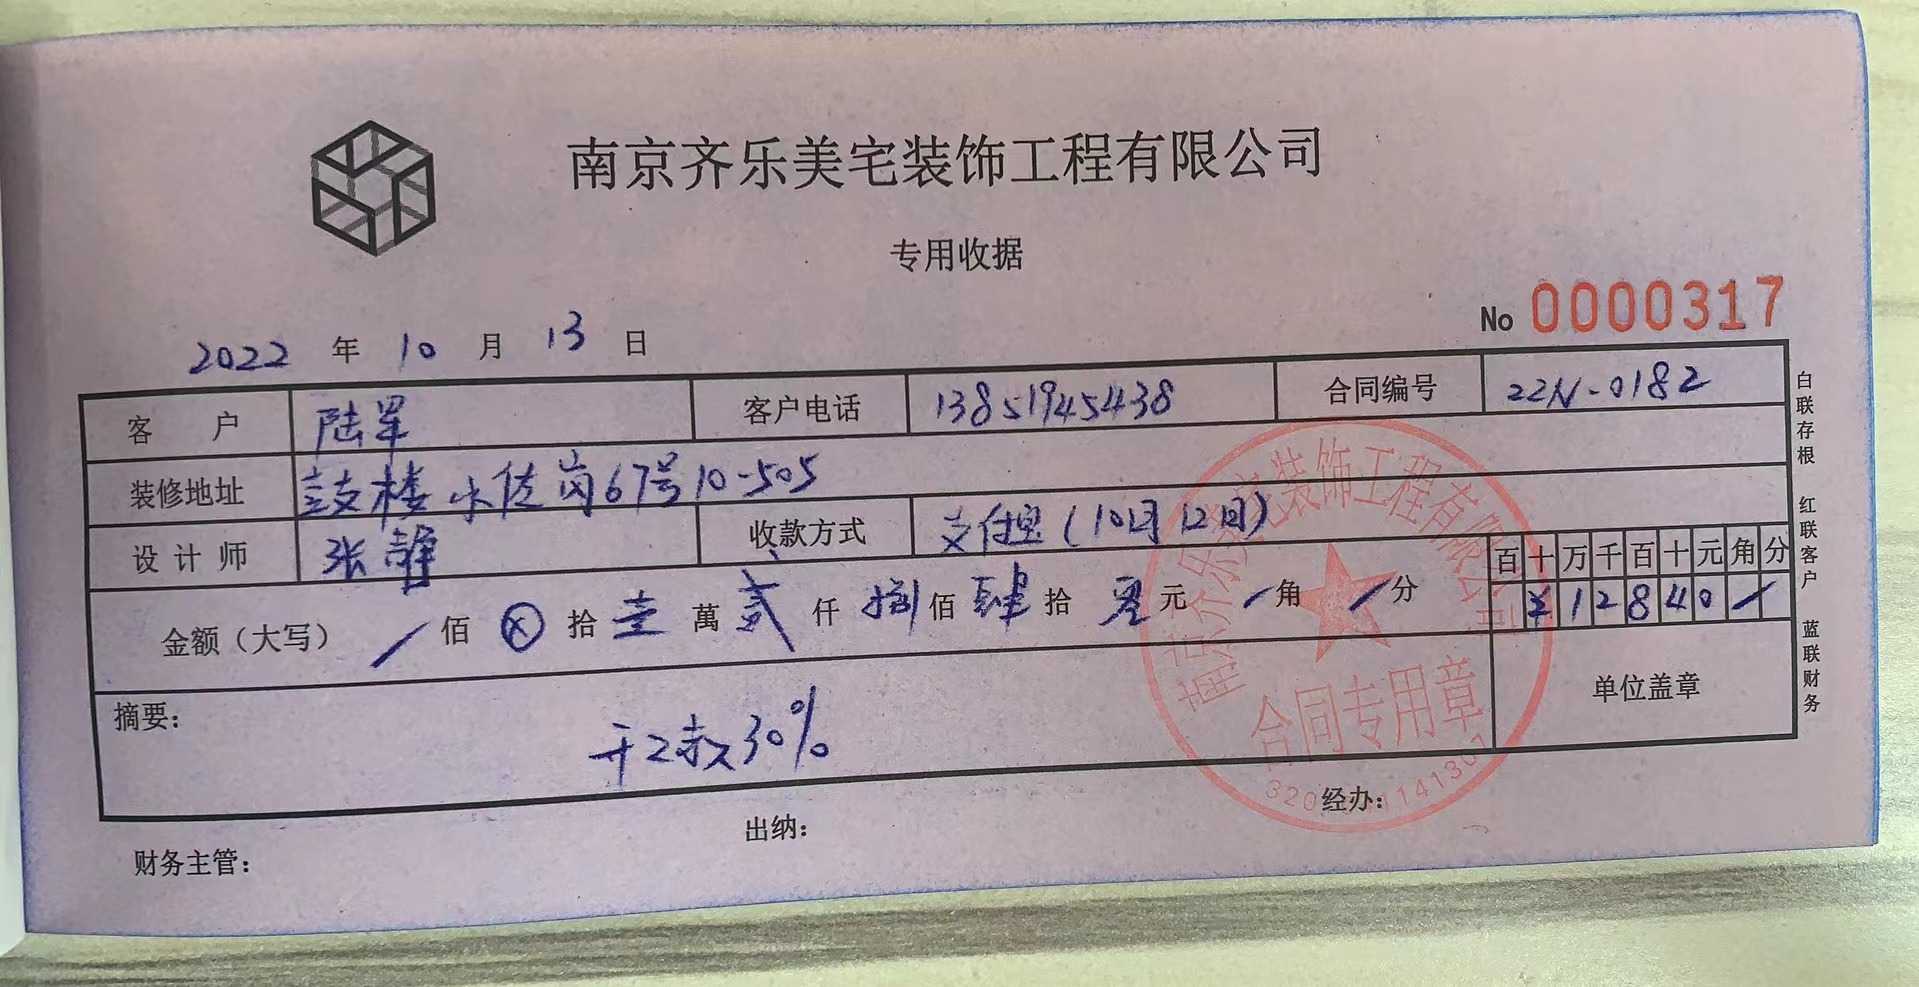 南京齐乐美宅装饰工程有限公司
专用收据
No 0000317
2022 年 10 月 13 日
客户 陆军 客户电话 13851945438 合同编号 22N-0182
装修地址 鼓楼水佐岗67号10-505
设计师 张静 收款方式 支付宝(10月12日)
百十万千百十元角分
金额(大写) / 佰 ⊗ 拾 壹 萬 贰 仟 捌 佰 肆 拾 零 元 / 角 / 分 ¥12840/
摘要: 开工款30%
单位盖章
财务主管: 出纳: 经办:
白联存根 红联客户 蓝联财务
合同专用章